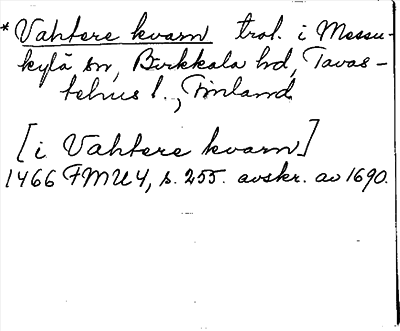 *Vahtere kvarn trol. i Messu-
kylä sn, Birkkala hd, Tavas-
tehus l., Finland.
[i Vahtere kvarn]
1466 FMU 4, s. 255. avskr. av 1690.